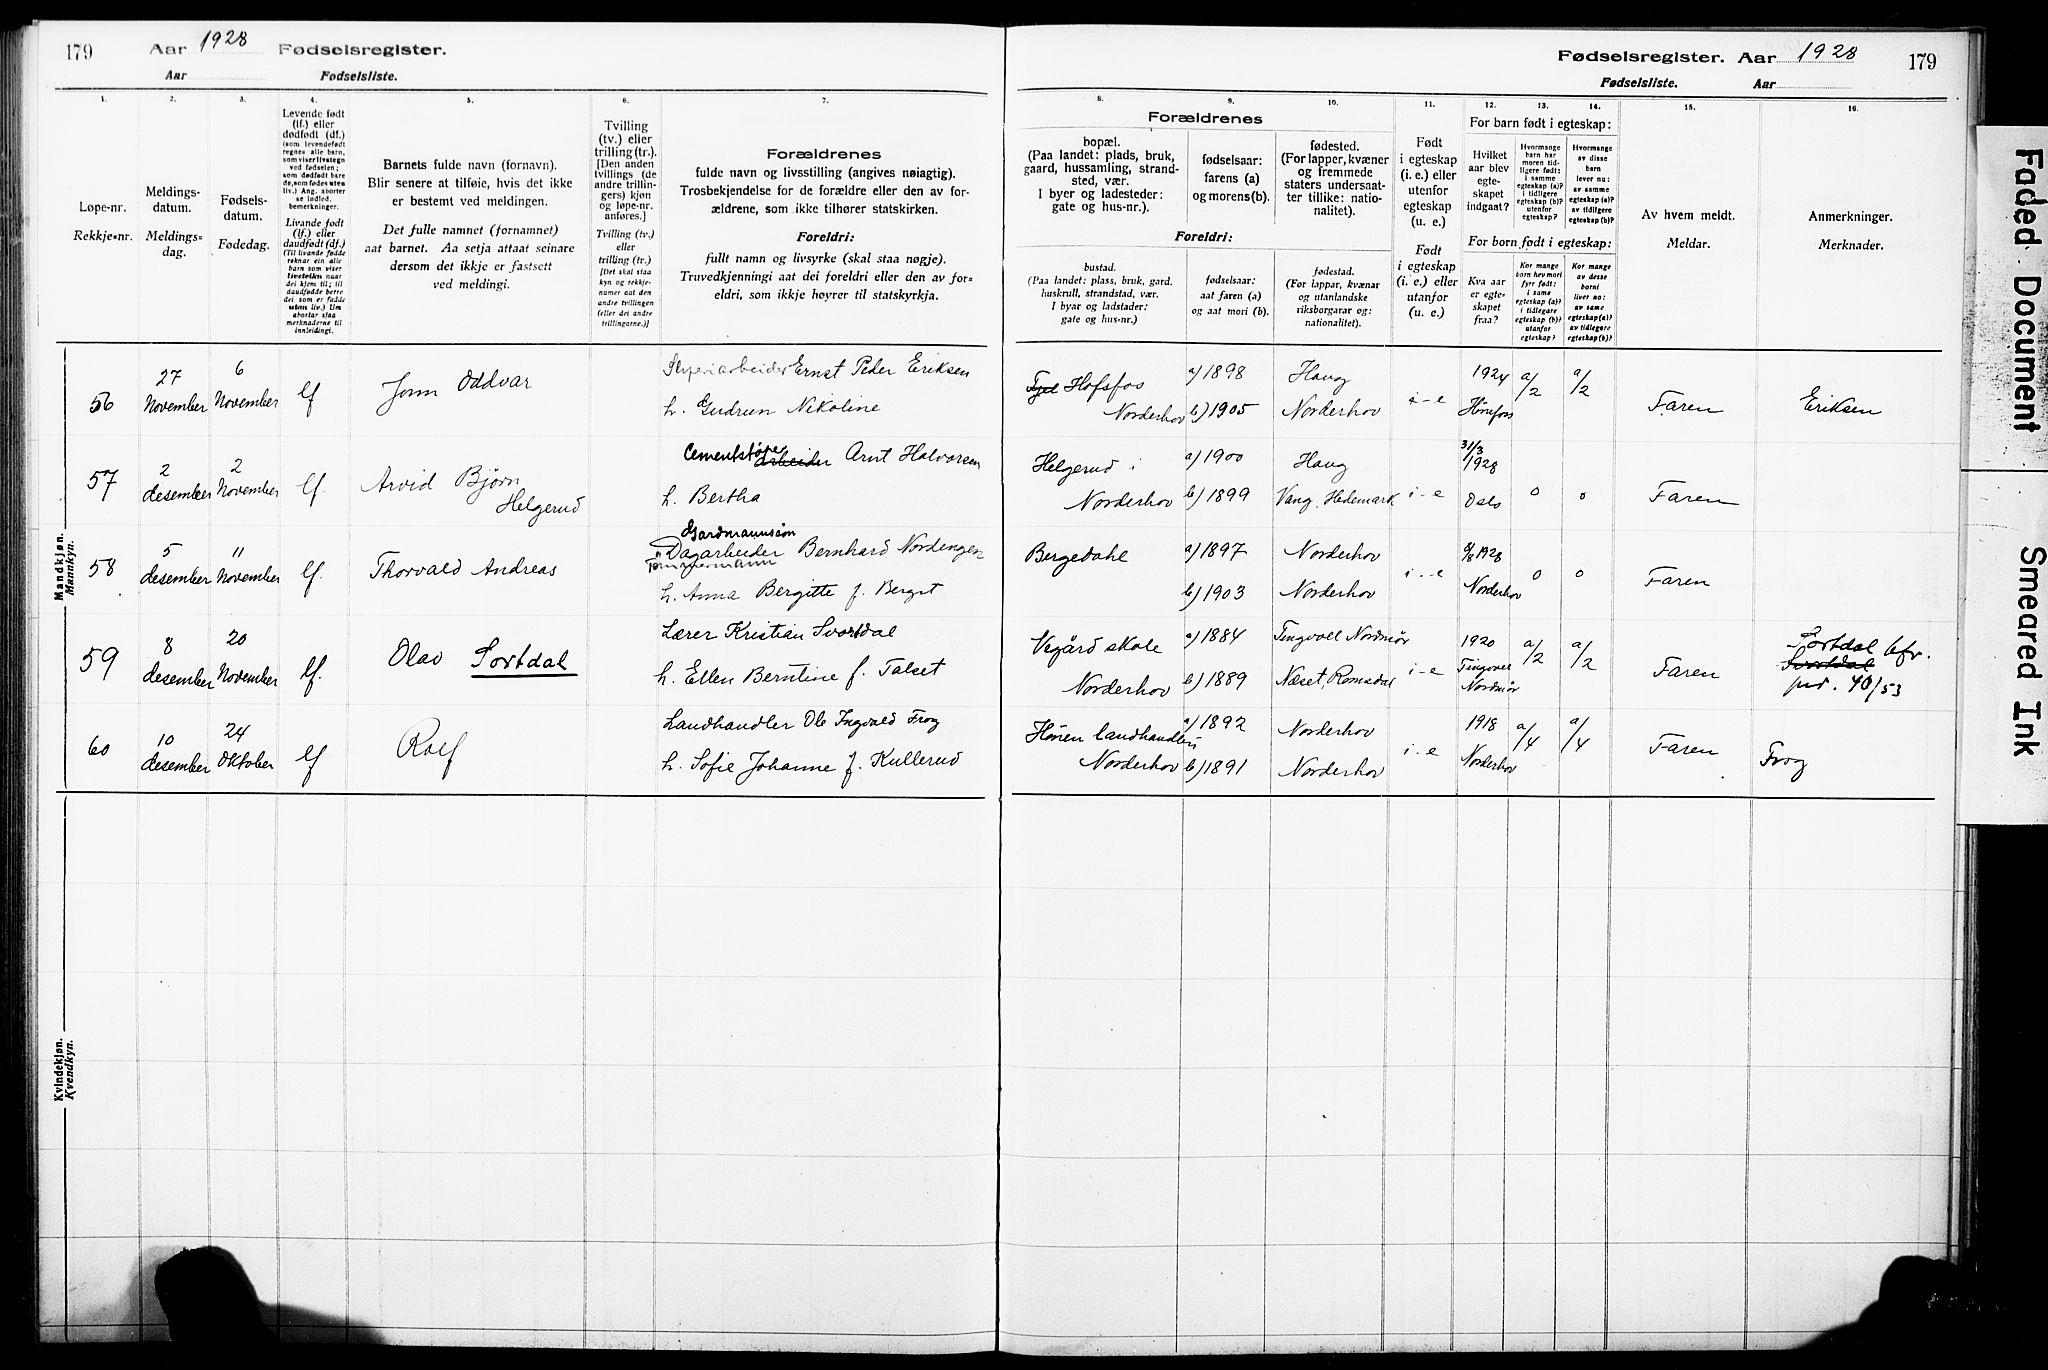 179 Aar 1928 Fødselsregister.
Aar Fødselsliste.
1. 2. 3. 4. 5. 6. 7.
Løpe-nr.
Rekkje-nr.
Meldings-
datum.
Meldings-
dag.
Fødsels-
datum.
Fødedag.
Levende født
(lf.) eller
dødfødt (df.)
(som levendefødt
regnes alle barn,
som viser livstegn
ved fødselen;
som dødfødt bare
de, som fødes uten
liv.) Ang. aborter
se indled.
bemerkninger.
Livande født
(lf.) eller
daudfødt (df.)
(Til livande fødde
reknar ein alle
barn som viser
livsteikn naar
dei kjem til; til
daudfødde berre
dei som er fødde
uten liv.) Um
abortar sjaa
merknaderne til
innleidingi.
Barnets fulde navn (fornavn).
Blir senere at tilføie, hvis det ikke
er bestemt ved meldingen.
Det fulle namnet (fornamnet)
aat barnet. Aa setja attaat seinare
dersom det ikkje er fastsett
ved meldingi.
Tvilling
(tv.) eller
trilling (tr.).
[Den anden
tvillings (de
andre trillin-
gers) kjøn
og løpe-nr.
anføres.]
Tvilling (tv.)
eller
trilling (tr.)
[Det skal staa
kyn og rekkje-
numer aat den
andre tvillingen
(eller dei andre
trillingarne.)]
Forældrenes
fulde navn og livsstilling (angives nøiagtig).
Trosbekjendelse for de forældre eller den av for-
ældrene, som ikke tilhører statskirken.
Foreldri:
fullt namn og livsyrke (skal staa nøgje).
Truvedkjenningi aat dei foreldri eller den av for-
eldri, som ikkje høyrer til statskyrkja.
Mandkjøn.
Mannkyn.
56 27 November 6 November lf Jonn Oddvar
Ernst Peder Eriksen
h. Gudrun Nikoline
57 2 desember 2 November lf. Arvid Bjørn
Helgerud
Cementstøper arbeider Arnt Halvorsen
h. Bertha
58 5 desember 11 November lf. Thorvald Andreas
Gardmannssøn
Dagarbeider Bernhard Nordengen
Tømmermann
h. Anna Bergitte f. Berget
59 8 desember 20 November lf. Olav Sortdal
Lærer Kristian Svortdal
h. Ellen Berntine f. Talset
60 10 desember 24 Oktober lf Rolf
Landhandler Ole Ingvald Frog
h. Sofie Johanne f. Kullerud
Kvindekjøn.
Kvendkyn.
Fødselsregister. Aar 1928 179
Fødselsliste. Aar
8. 9. 10. 11. 12. 13. 14. 15. 16.
Forældrenes
bopæl.
(Paa landet: plads, bruk,
gaard, hussamling, strand-
sted, vær.
I byer og ladesteder:
gate og hus-nr.).
fødselsaar:
farens (a)
og morens (b).
fødested.
(For lapper, kvæner
og fremmede
staters undersaat-
ter tillike: natio-
nalitet).
Foreldri:
bustad.
(Paa landet: plass, bruk, gard.
huskrull, strandstad, vær.
I byar og ladstader:
gate og hus-nr.)
fødselsaar:
aat faren (a)
og aat mori (b).
fødestad.
(For lappar, kvænar
og utanlandske
riksborgarar og:
nationalitet).
Født
i egteskap
(i. e.) eller
utenfor
egteskap
(u. e.)
Født
i egteskap
(i. e.) eller
utanfor
(u. e.)
For barn født i egteskap:
Hvilket
aar blev
egte-
skapet
indgaat?
Hvormange
barn har
moren tid-
ligere født:
i samme
egteskap (a)?
i tidligere
egteskap (b)?
utenfor
egteskap?
Hvormange
av disse
barn
lever nu:
av samme
egteskap (a)?
av tidligere
egteskap (b)?
For born født i egteskap:
Kva aar
er egte-
skapet
fraa?
Kor mange
born hev mori
fyrr født:
i same
egteskap (a)?
i tidlegare
egteskap (b)?
utanfor
egteskap?
Kor mange
av desse
borni
liver no:
av same
egteskap (a)?
av tidlegare
egteskap (b)?
Av hvem meldt.
Meldar.
Anmerkninger.
Merknader.
Hofsfos
Norderhov a) 1898 b) 1905 Haug Norderhov i-e 1924 Hønefoss a/2 a/2 Faren Eriksen
Helgerud i
Norderhov a) 1900 b) 1899 Haug Vang, Hedemark i-e 31/3 1928 Oslo 0 0 Faren
Bergedahl a) 1897 b) 1903 Norderhov Norderhov i-e 1928 Norderhov 0 0 Faren
Vegård skole
Norderhov a) 1884 b) 1889 Tingvoll Nordmør Næset, Romsdal i-e 1920 Tingvoll Nordmør a/2 a/2 Faren Sortdal bfr.
Svortdal
prd. 40/53
Hønen landhandleri
Norderhov a) 1892 b) 1891 Norderhov Norderhov i-e 1918 Norderhov a/4 a/4 Faren Frog
Faded Document
Smeared Ink